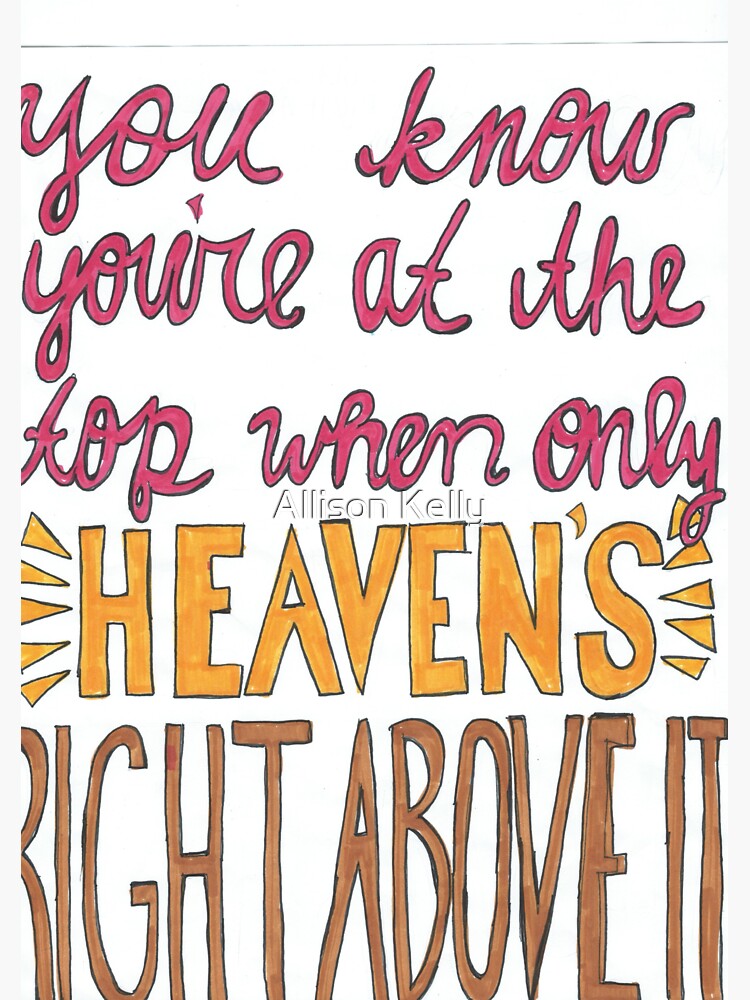 you know
you're at the
top when only
Allison Kelly
HEAVEN'S
RIGHT ABOVE IT